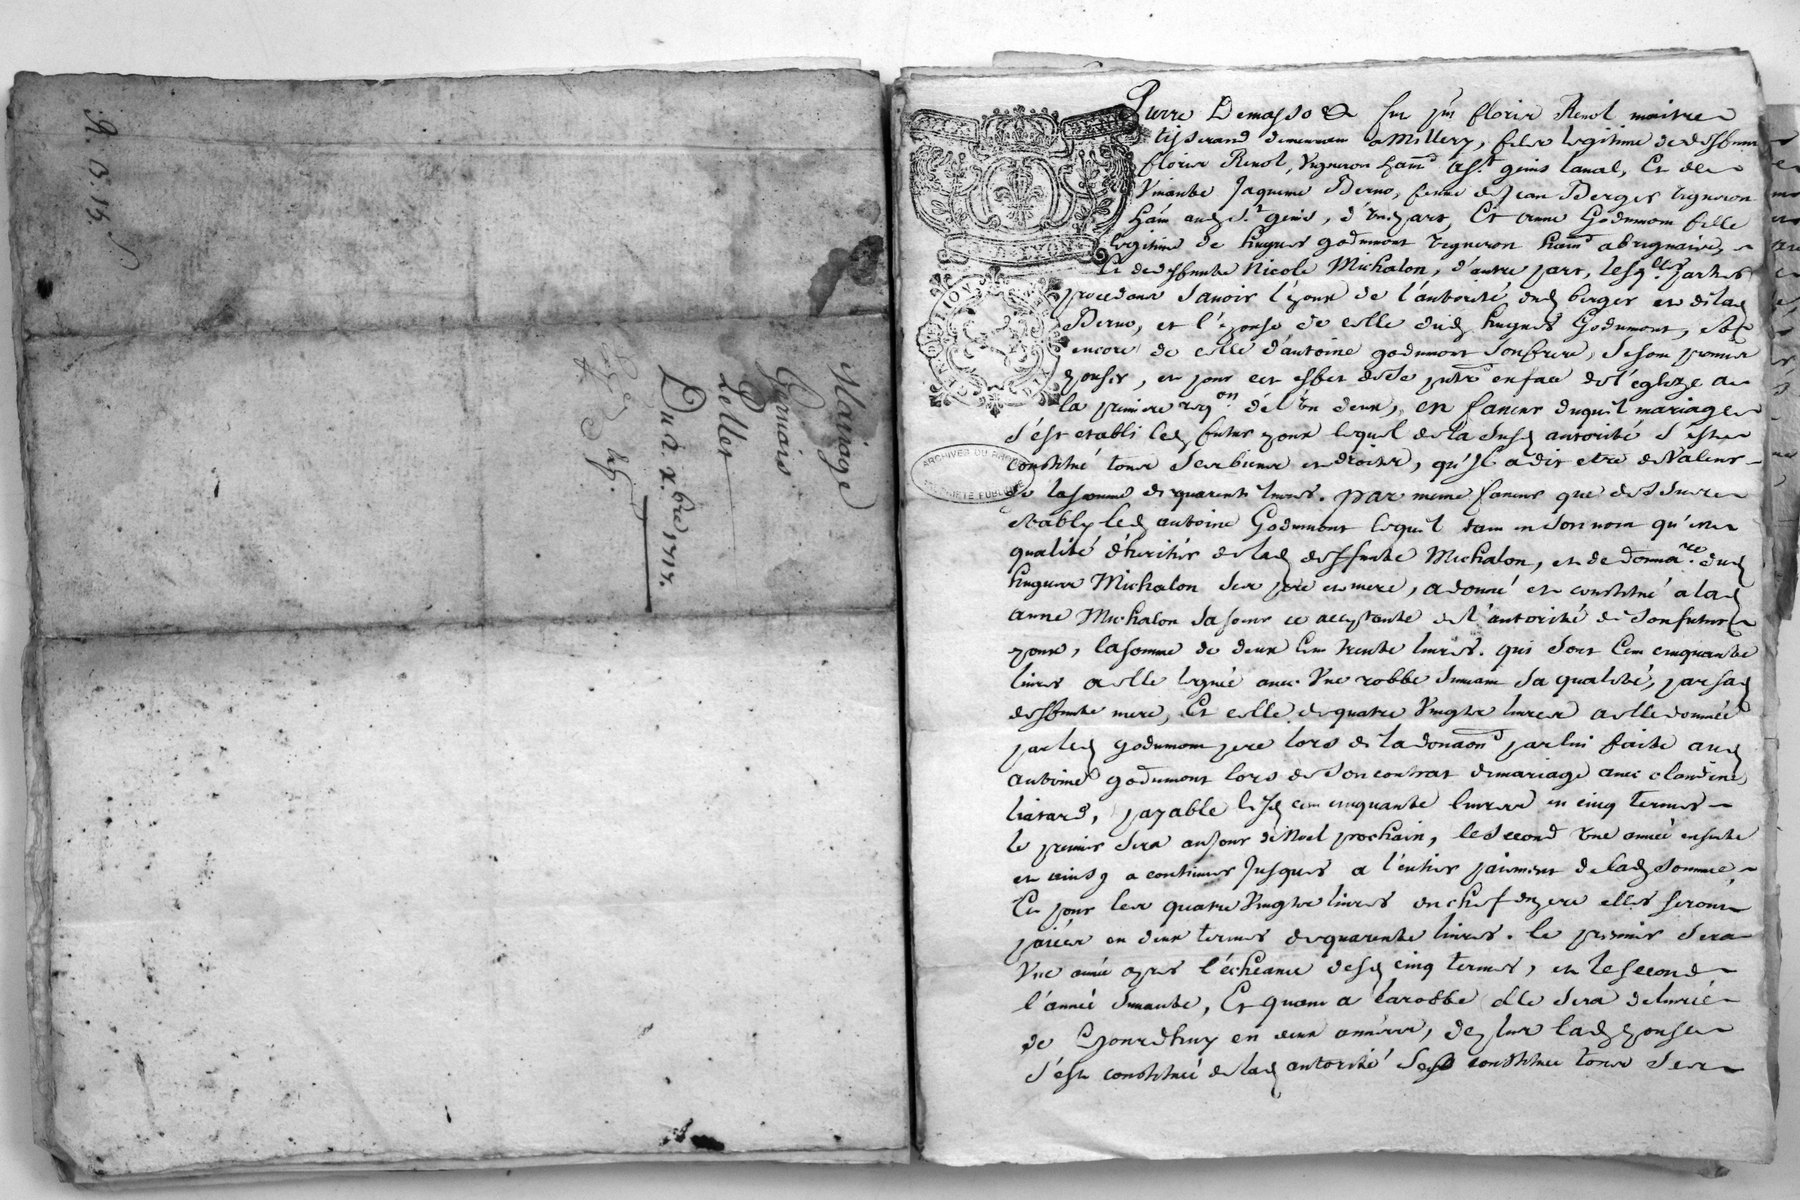 R. B. 13. S.
Mariage
Gervais
Pellet
Du 2. x.bre 1717.
GENERALITE DE LYON
ARCHIVES DU RHONE
PROPRIETE PUBLIQUE
Pierre Demasso & fur pnt floris Renol maitre
tisserand demeurant a Millery, fils legitime de deffunt
floris Renol, vigneron hant a St. genis laval, Et de
Vivante Jaqueme Berno, femme de Jean Berger vigneron
hant aud St. genis, d'une part, Et anne Godumont fille
legitime de hugues godumont vigneron hant a brignaire,
Et de deffunte Nicole Michalon, d'autre part, lesqlles parties
procedans Savoir l'epoux de l'autorité dud berger et de lad
Berno, et l'epouse de celle dud hugues Godumont, et
encore de celle d'antoine godumont Son frere, Se sont promis
epouser, et pour cet effet de Se pnter en face de l'eglize a
la premiere reqon de l'un deux, en faveur duquel mariage
S'est etabli led futur epoux lequel de la Susd autorité S'est
constitué tous Ses biens et droits, qu'Il a dit etre de Valeur
de la somme de quarente livres. par meme faveur que dessus est
etably led antoine Godumont lequel tant en Son nom qu'en
qualité d'heritier de lad deffunte Michalon, et de donnare dud
hugues Michalon Ses pere et mere, a donné et constitué a lad
anne Michalon Sa soeur ce acceptante de l'autorité de Son futur
epoux, la somme de deux Cent trente livres. qui Sont Cent cinquante
livres a elle legués avec Une robbe Suivant Sa qualité, par sad
deffunte mere, Et celle de quatre Vingts livres a elle donnée
par led godumont pere lors de la donaon par lui faite aud
antoine godumont lors de Son contrat de mariage avec claudine
liatard, payable lesd cent cinquante livres en cinq termes
le premier Sera au Jour de Noel prochain, le second une année ensuite
et ainsy a continuer Jusques a l'entier paiement de lad Somme
Et pour les quatre Vingts livres du chef du pere elles Seront
paiées en deux termes de quarente livres. le premier Sera
Une année apres l'echeance desd cinq termes, et le second
l'année Suivante, Et quant a la robbe elle Sera delivrée
de Ce jourdhuy en deux années, de plus lad epouse
S'est constituée de lad autorité constitue tous Ses